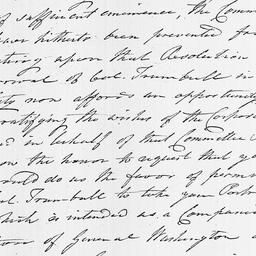 of sufficient eminence, the Comm
hitherto been prevented fr
upon that Resolution
arrival of Col. Trumbull in
now affords an opportunity
ratifying the wishes of the Corpor
in behalf of that Committee
the honor to request that yo
would do us the favor of perm
Col. Trumbull to take your Portr
which is intended as a Compan
of General Washington